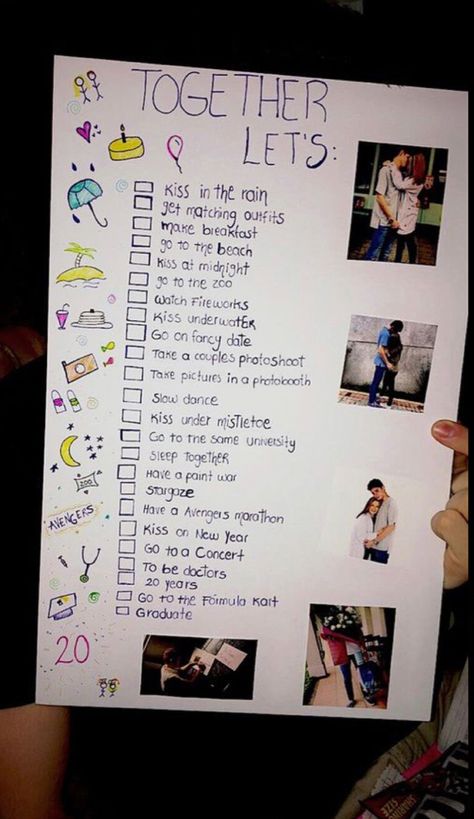 TOGETHER
LET'S:
Kiss in the rain
get matching outfits
make breakfast
go to the beach
Kiss at midnight
go to the zoo
Watch Fireworks
Kiss underwatER
Go on fancy date
Take a couples photoshoot
Take pictures in a photobooth
Slow dance
Kiss under misTleToe
Go to the same university
Sleep TogetheR
Have a paint war
Stargaze
Have a Avengers marathon
Kiss on New Year
Go to a Concert
To be doctors
20 years
Go to the Formula Kart
Graduate
ZOO
AVENGERS
20
SIZE